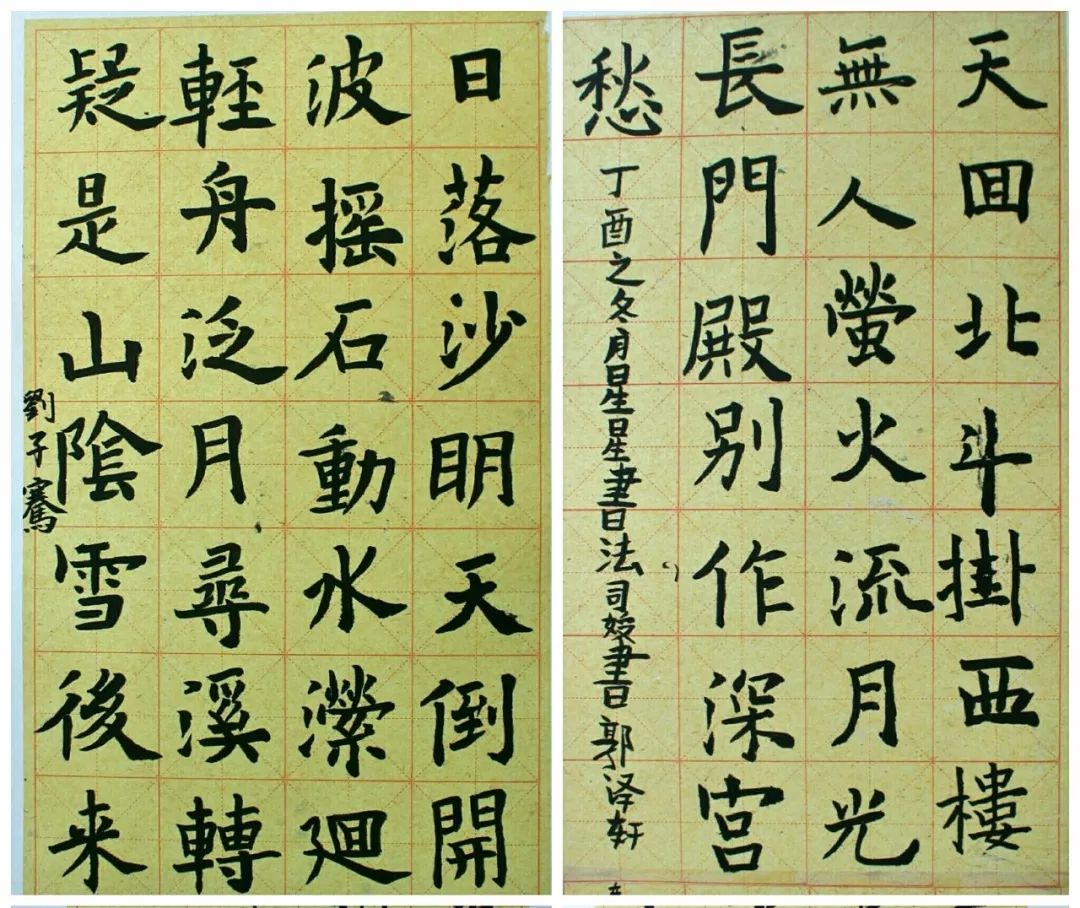 日落沙眀天倒開
波摇石動水瀠廻
輕舟泛月尋溪轉
疑是山陰雪後来
劉子騫
天囬北斗掛西樓
無人螢火流月光
長門殿别作深宫
愁
丁酉之冬月星星書法司書郭泽轩